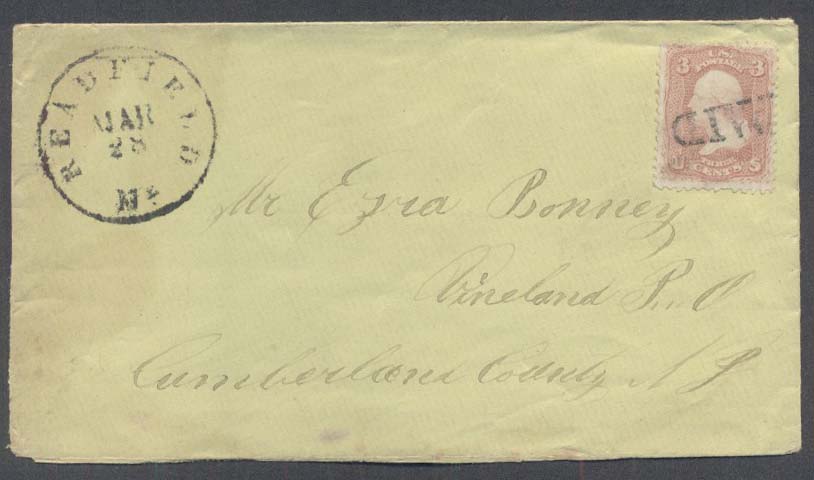 READFIELD
MAR
28
Me
3 U.S. 3
POSTAGE
PAID
U THREE S
CENTS
Mr Ezra Bonney
Vineland P. O
Cumberland County N J